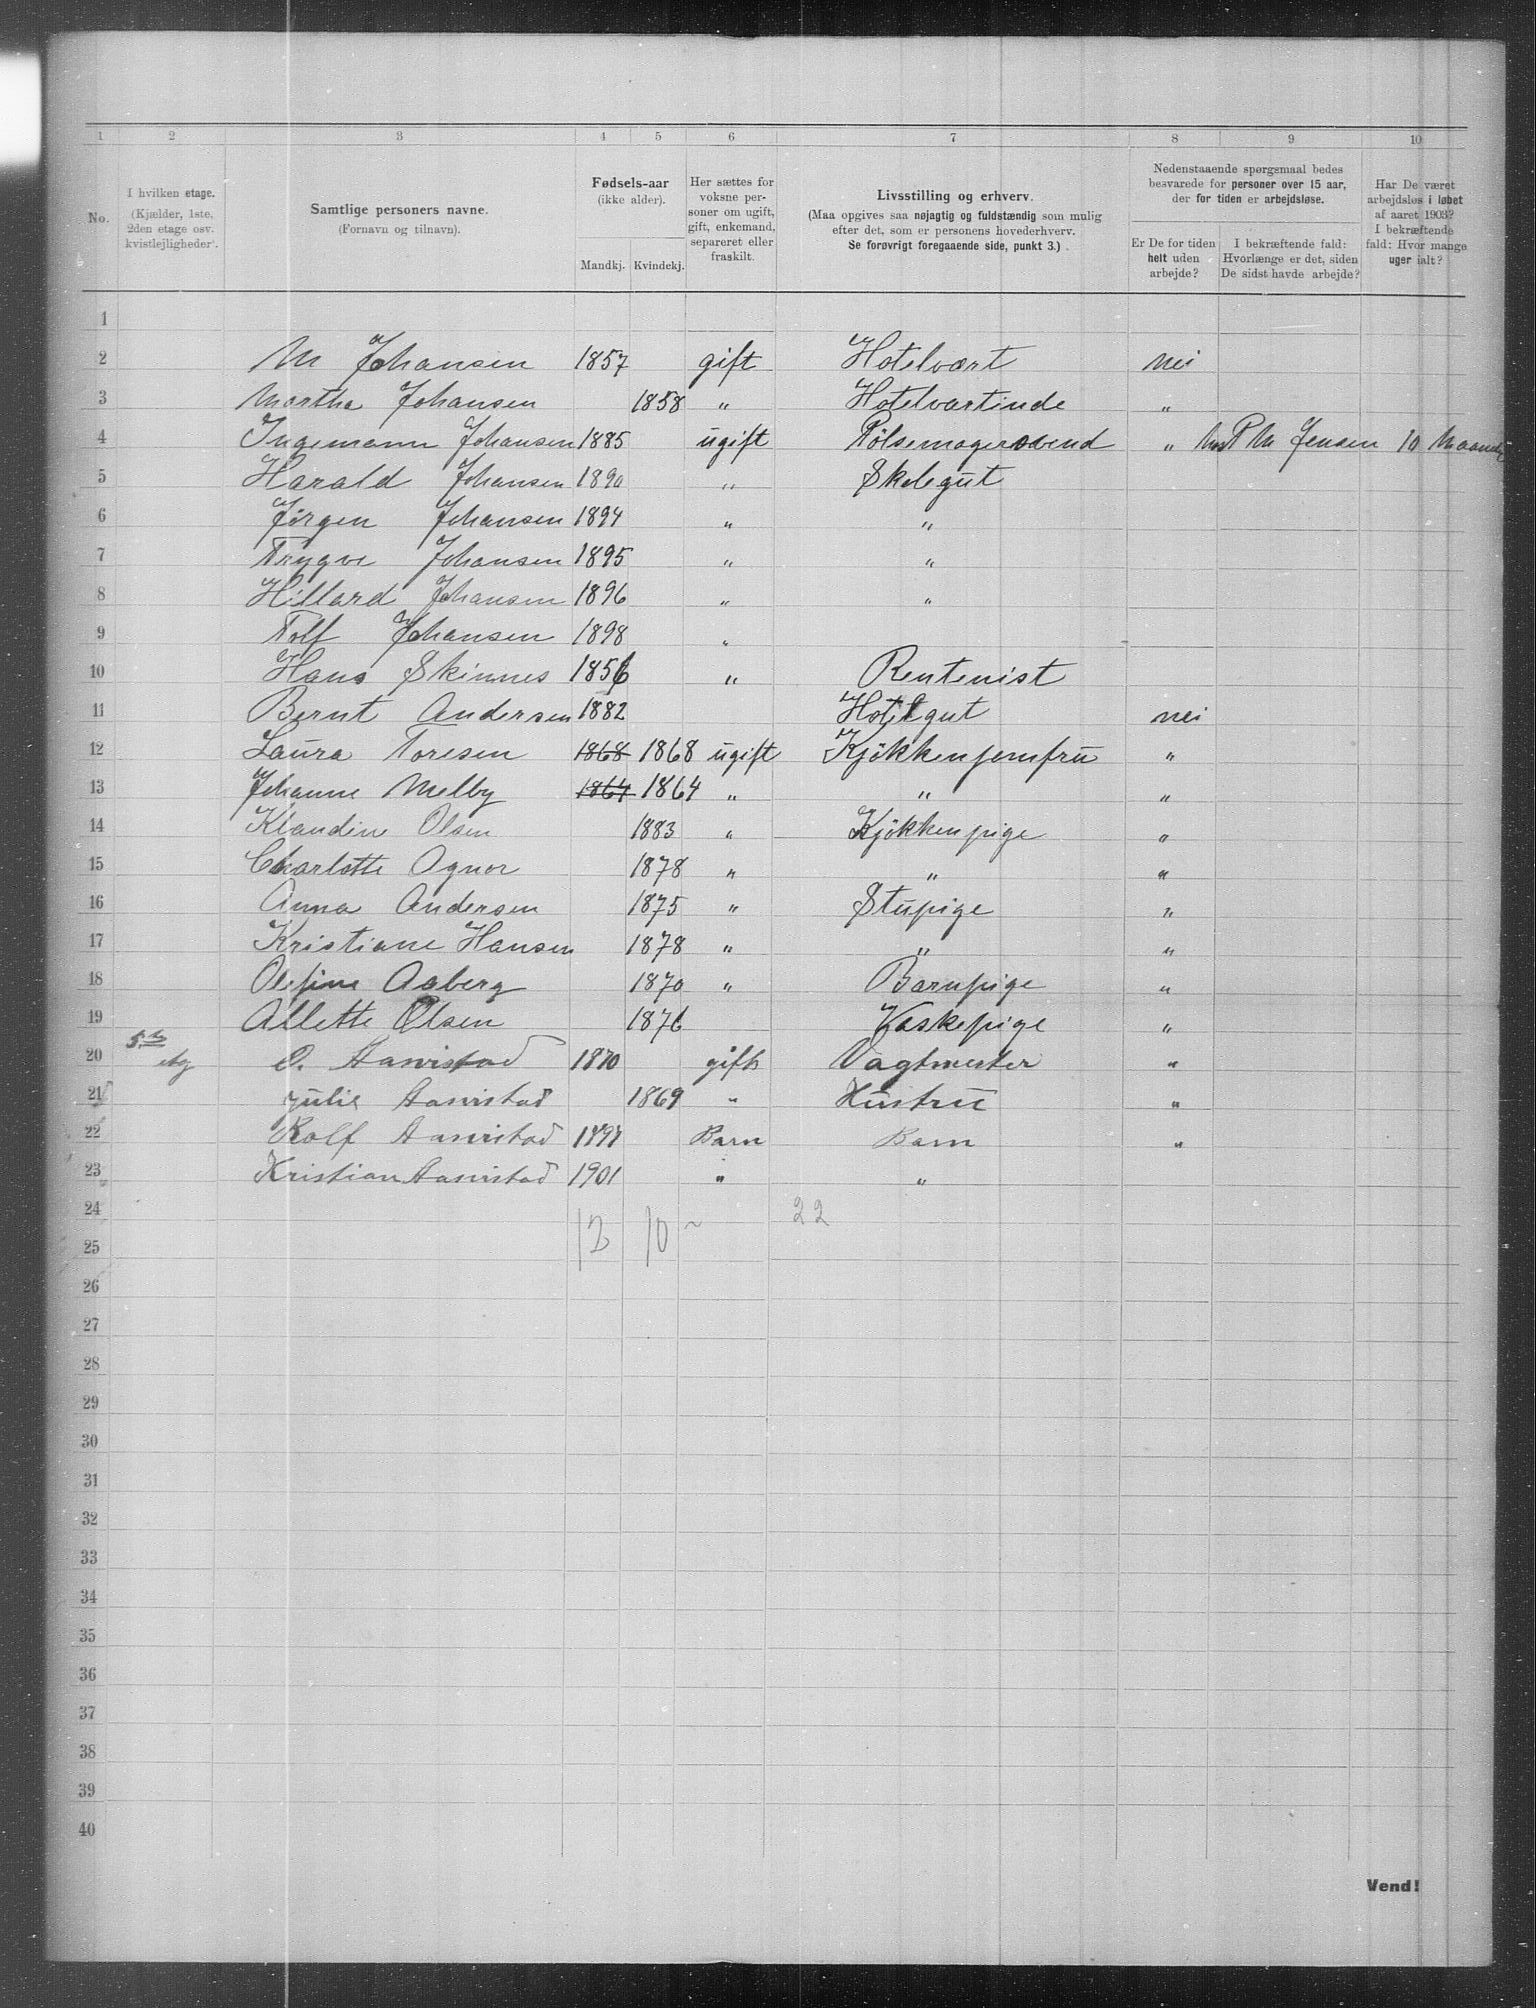 1 2 3 4 5 6 7 8 9 10
No.
I hvilken etage.
(Kjælder, 1ste,
2den etage osv.
kvistlejligheder).
Samtlige personers navne.
(Fornavn og tilnavn).
Fødsels-aar
(ikke alder).
Mandkj. Kvindekj.
Her sættes for
voksne per-
soner om ugift,
gift, enkemand,
separeret eller
fraskilt.
Livsstilling og erhverv.
(Maa opgives saa nøjagtig og fuldstændig som mulig
efter det, som er personens hovederhverv.
Se forøvrigt foregaaende side, punkt 3.)
Nedenstaaende spørgsmaal bedes
besvarede for personer over 15 aar,
der for tiden er arbejdsløse.
Er De for tiden
helt uden
arbejde?
I bekræftende fald:
Hvorlænge er det, siden
De sidst havde arbejde?
Har De været
arbejdsløs i løbet
af aaret 1903?
I bekræftende
fald: Hvor mange
uger ialt?
1
2 M Johansen 1857 gift Hotelvært nei
3 Martha Johansen 1858 " Hotelværtinde "
4 Ingemann Johansen 1885 ugift Pølsemagersvend " hos P M Jensen 10 Maaneder
5 Harald Johansen 1890 " Skolegut
6 Jørgen Johansen 1894 " "
7 Trygve Johansen 1895 " "
8 Hillard Johansen 1896 " "
9 Rolf Johansen 1898 "
10 Hans Skinnes 1856 " Rentenist
11 Bernt Andersen 1882 Hotelgut nei
12 Laura Toresen 1868 1868 ugift Kjøkkenjomfru "
13 Johanne Melby 1864 1864 " " "
14 Klaudine Olsen 1883 " Kjøkkenpige "
15 Charlotte Agnor 1878 " " "
16 Anna Andersen 1875 " Stupige "
17 Kristiane Hansen 1878 " " "
18 Olefine Aaberg 1870 " Barnpige "
19 Allette Olsen 1876 Vaskepige "
5te
20 etg O. Hanvistad 1870 gift Vagtmester "
21 Julie Hanvistad 1869 " Hustru "
22 Rolf Hanvistad 1897 Barn Barn "
23 Kristian Hanvistad 1901 " "
24 22
12 10 ~
25
26
27
28
29
30
31
32
33
34
35
36
37
38
39
40
Vend!